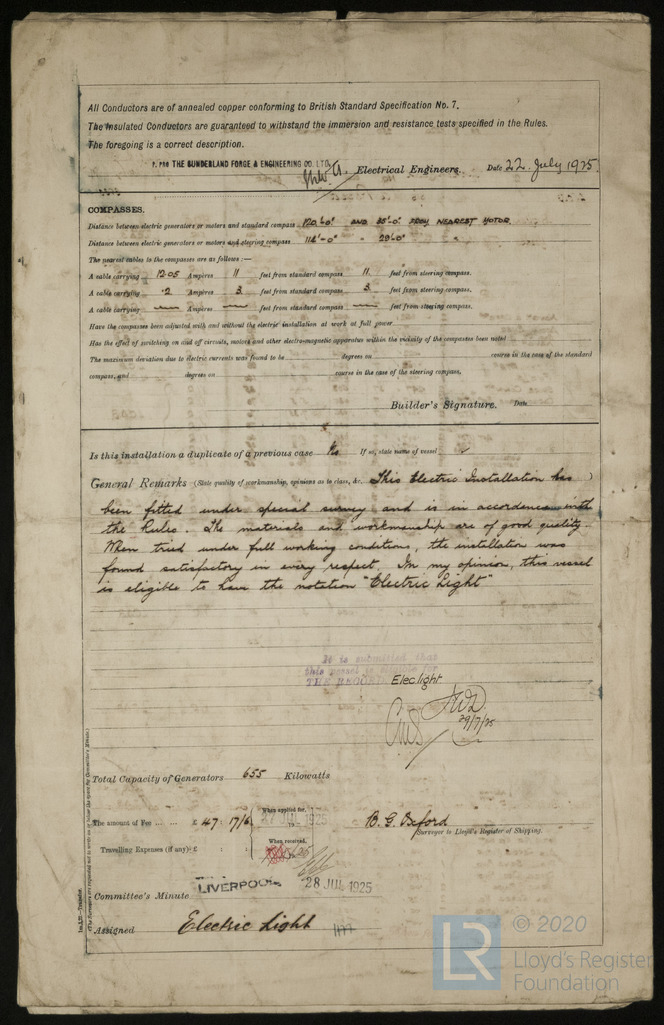 All Conductors are of annealed copper conforming to British Standard Specification No. 7.
The Insulated Conductors are guaranteed to withstand the immersion and resistance tests specified in the Rules.
The foregoing is a correct description.
THE SUNDERLAND FORGE & ENGINEERING CO. LTD. Electrical Engineers. Date 22 July 1925
COMPASSES.
Distance between electric generators or motors and standard compass 120'-0" AND 35'-0" FROM NEAREST MOTOR
Distance between electric generators or motors and steering compass 114'-0" " 29'-0" "
The nearest cables to the compasses are as follows:—
A cable carrying 12.05 Ampères 11 feet from standard compass 11 feet from steering compass.
A cable carrying .2 Ampères 3 feet from standard compass 3 feet from steering compass.
A cable carrying — Ampères — feet from standard compass — feet from steering compass.
Have the compasses been adjusted with and without the electric installation at work at full power
Has the effect of switching on and off circuits, motors and other electro-magnetic apparatus within the vicinity of the compasses been noted
The maximum deviation due to electric currents was found to be degrees on course in the case of the standard
compass, and degrees on course in the case of the steering compass.
Builder's Signature. Date
Is this installation a duplicate of a previous case No If so, state name of vessel
General Remarks (State quality of workmanship, opinions as to class, &c. This Electric Installation has )
been fitted under special survey and is in accordance with
the Rules. The materials and workmanship are of good quality.
When tried under full working conditions, the installation was
found satisfactory in every respect. In my opinion, this vessel
is eligible to have the notation "Electric Light"
It is submitted that
this vessel is eligible for
THE RECORD
Elec. light
29/7/25
Total Capacity of Generators 655 Kilowatts
The amount of Fee ... ... £ 47 : 17/6 When applied for, 27 JUL 1925
B. G. Oxford
Surveyor to Lloyd's Register of Shipping.
Travelling Expenses (if any) £ : : When received,
Committee's Minute LIVERPOOL 28 JUL 1925
Assigned Electric Light
© 2020
LR Lloyd's Register
Foundation